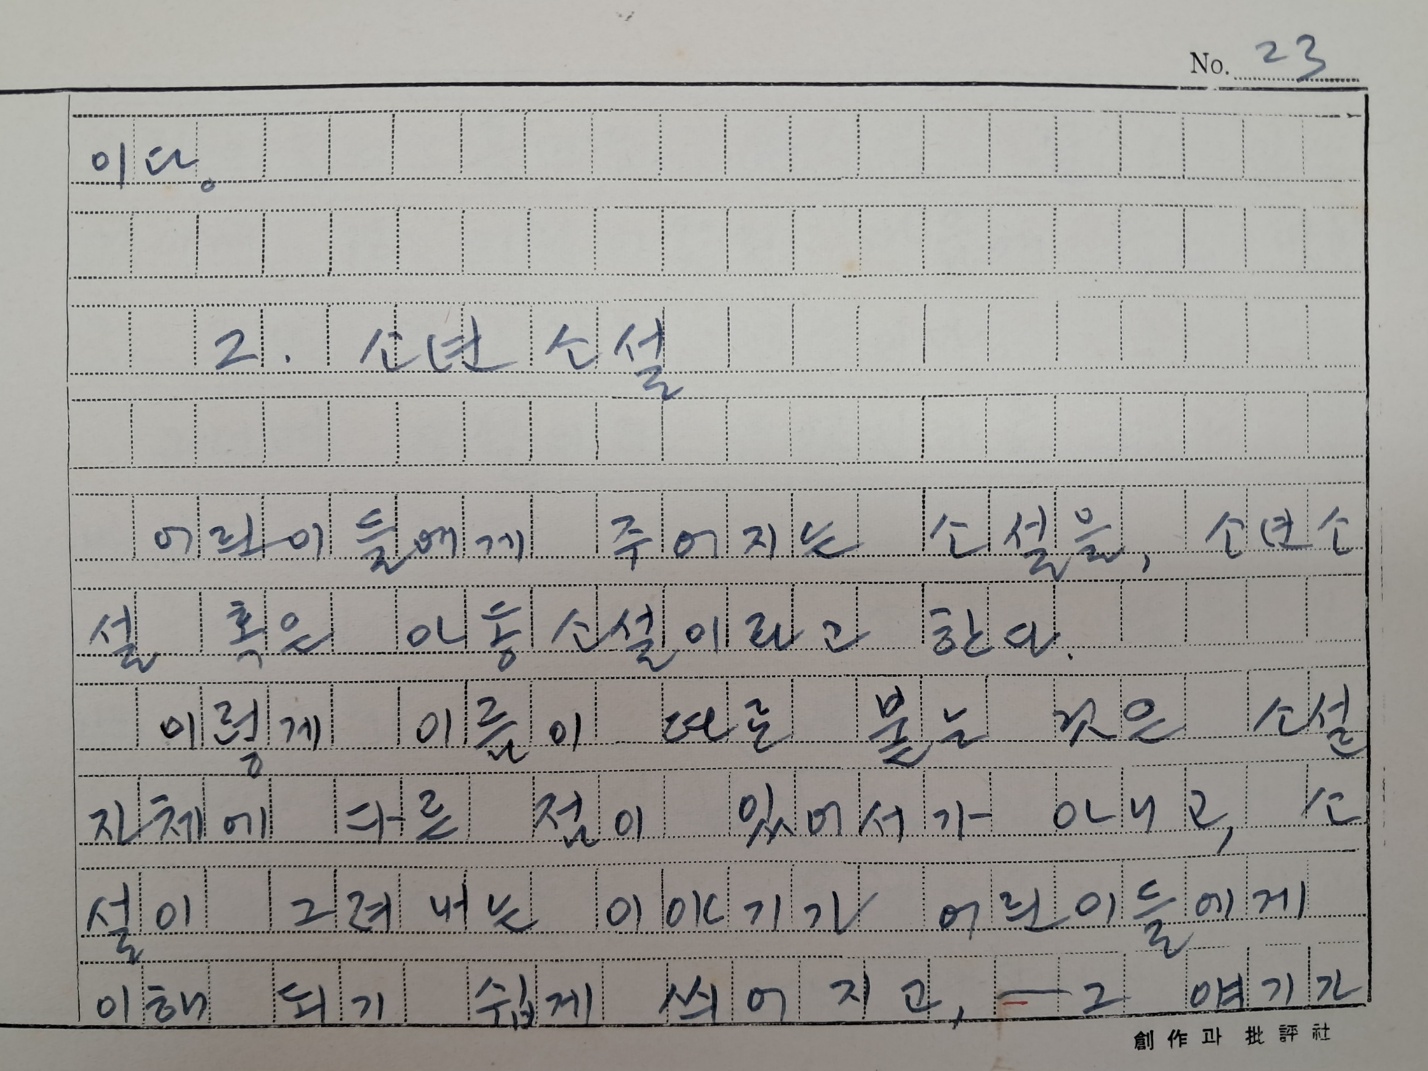 No. 23
이다。
2. 소년 소설
어린이들에게 주어지는 소설을, 소년소
설 혹은 아동소설이라고 한다.
이렇게 이름이 따로 붙는 것은 소설
자체에 다른 점이 있어서가 아니고, 소
설이 그려 내는 이야기가 어린이들에게
이해 되기 쉽게 씌어 지고, 그 얘기가
創作과 批評社